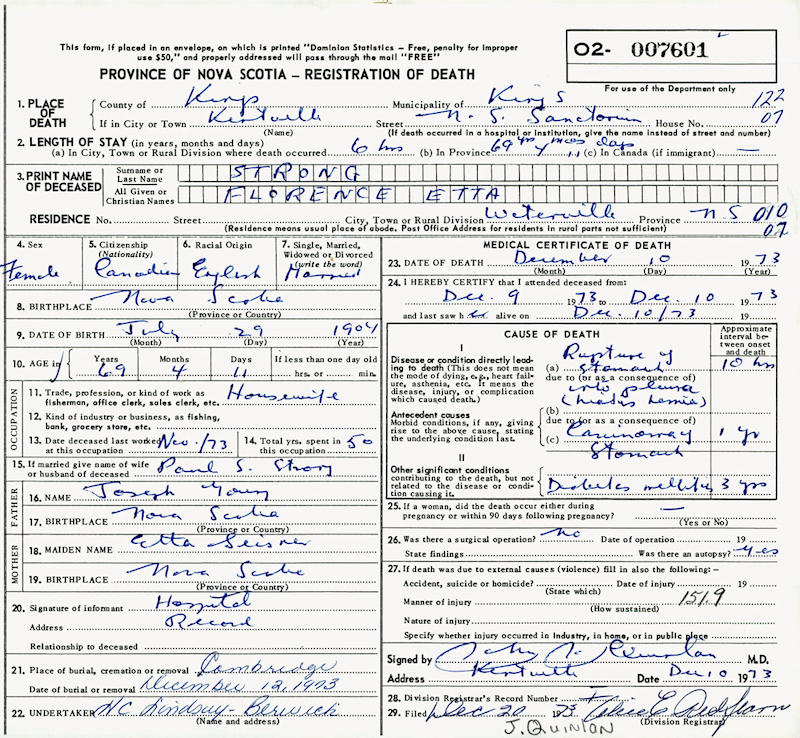 This form, if placed in an envelope, on which is printed "Dominion Statistics - Free, penalty for improper
use $50," and properly addressed will pass through the mail "FREE"
O2- 007601
PROVINCE OF NOVA SCOTIA - REGISTRATION OF DEATH
For use of the Department only
1. PLACE OF DEATH County of Kings Municipality of Kings 122
If in City or Town Kentville Street N. S. Sanctorium House No. 07
(Name) (If death occurred in a hospital or institution, give the name instead of street and number)
2. LENGTH OF STAY (in years, months and days)
(a) In City, Town or Rural Division where death occurred 6 hrs (b) In Province 69 yrs 4 mos 11 days (c) In Canada (if immigrant) —
3. PRINT NAME OF DECEASED Surname or Last Name STRONG
All Given or Christian Names FLORENCE ETTA
RESIDENCE No. Street City, Town or Rural Division Waterville Province N.S 010
(Residence means usual place of abode. Post Office Address for residents in rural parts not sufficient) 07
4. Sex Female
5. Citizenship (Nationality) Canadian
6. Racial Origin English
7. Single, Married, Widowed or Divorced (write the word) Married
8. BIRTHPLACE Nova Scotia
(Province or Country)
9. DATE OF BIRTH July 29 1904
(Month) (Day) (Year)
10. AGE in Years Months Days If less than one day old
69 4 11 hrs. or min.
OCCUPATION
11. Trade, profession, or kind of work as fisherman, office clerk, sales clerk, etc. Housewife
12. Kind of industry or business, as fishing, bank, grocery store, etc.
13. Date deceased last worked at this occupation Nov. /73
14. Total yrs. spent in this occupation 50
15. If married give name of wife or husband of deceased Paul S. Strong
FATHER
16. NAME Joseph Young
17. BIRTHPLACE Nova Scotia
(Province or Country)
MOTHER
18. MAIDEN NAME Etta
19. BIRTHPLACE Nova Scotia
(Province or Country)
20. Signature of informant Hospital
Address Record
Relationship to deceased
21. Place of burial, cremation or removal Cambridge
Date of burial or removal December 12, 1973
22. UNDERTAKER HC Lindsay - Berwick
(Name and address)
MEDICAL CERTIFICATE OF DEATH
23. DATE OF DEATH December 10 1973
(Month) (Day) (Year)
24. I HEREBY CERTIFY that I attended deceased from:
Dec. 9 1973 to Dec. 10 1973
and last saw her alive on Dec. 10/73 19
CAUSE OF DEATH
Approximate interval between onset and death
I
Disease or condition directly leading to death (This does not mean the mode of dying, e.g., heart failure, asthenia, etc. It means the disease, injury, or complication which caused death.)
(a) Rupture of stomach 10 hrs
due to (or as a consequence of)
into pleura
(hiatus hernia)
Antecedent causes
Morbid conditions, if any, giving rise to the above cause, stating the underlying condition last.
(b)
due to (or as a consequence of)
(c) Carcinoma of Stomach 1 yr
II
Other significant conditions
contributing to the death, but not related to the disease or condition causing it. Diabetes mellitus 3 yrs
25. If a woman, did the death occur either during pregnancy or within 90 days following pregnancy? —
(Yes or No)
26. Was there a surgical operation? No Date of operation 19
State findings Was there an autopsy? Yes
27. If death was due to external causes (violence) fill in also the following:-
Accident, suicide or homicide? Date of injury 19
(State which)
Manner of injury 151.9
(How sustained)
Nature of injury
Specify whether injury occurred in Industry, in home, or in public place
Signed by John J. Quinlan M.D.
Address Kentville Date Dec 10 1973
28. Division Registrar's Record Number
29. Filed Dec 20 1973
(Division Registrar)
J. QUINLAN